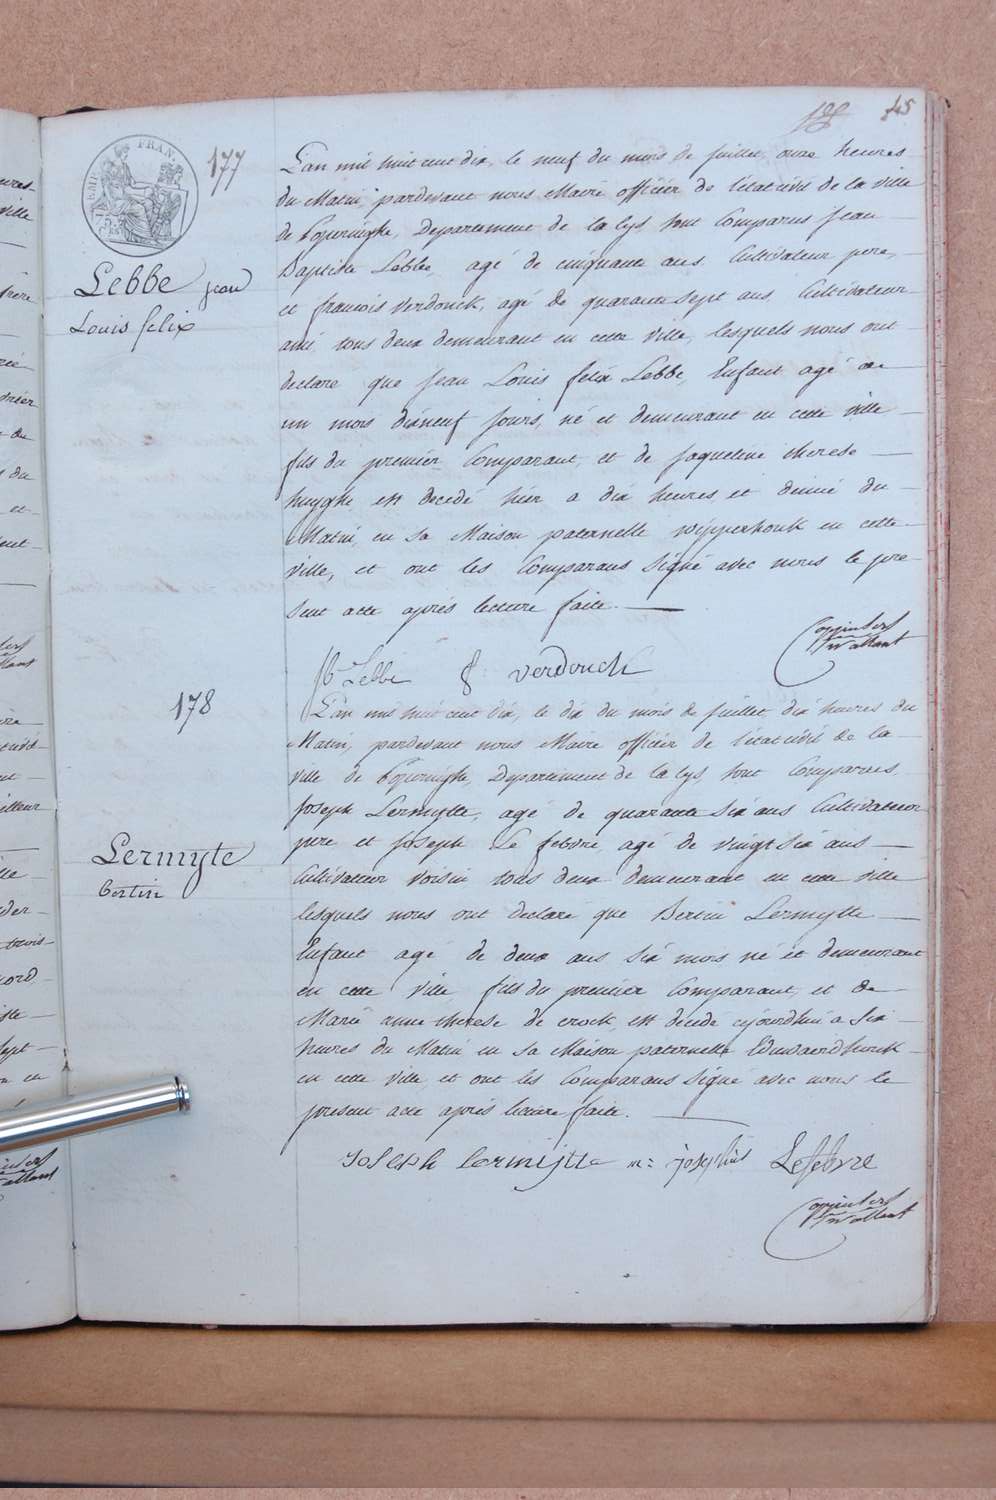 45
177
Lebbe jean
Louis felix
L'an mil huit cent dix, le neuf du mois de juillet, onze heures
du Matin, pardevant nous Maire officier de l'état civil de la ville
de Poperinghe, Departement de la Lys, sont Comparus jean
Baptiste Lebbe, agé de cinquante ans Cultivateur pere,
et francois verdonck, agé de quarante sept ans Cultivateur
ami, tous deux demeurant en cette ville, lesquels nous ont
declare que jean Louis felix Lebbe, Enfant agé de
un mois dixneuf jours, né et demeurant en cette ville
fils du premier Comparant, et de jaqueline therese
huyghe est decedé hier a dix heures et demie du
Matin, en sa Maison paternelle wipperhouk en cette
ville, et ont les Comparans signé avec nous le pre
sent acte aprés lecture faite.
jb Lebbe f verdonck
178
Lermyte
Bertin
L'an mil huit cent dix, le dix du mois de juillet dix heures du
Matin, pardevant nous Maire officier de l'état civil de la
ville de Poperinghe, Departement de la Lys, sont Comparus
joseph Lermytte, agé de quarante six ans Cultivateur
pere et joseph Le febvre, agé de vingt six ans
Cultivateur voisin tous deux demeurant en cette ville
lesquels nous ont declaré que Bertin Lermytte
Enfant agé de deux ans six mois né et demeurant
en cette ville, fils du premier Comparant, et de
Marie anne therese de crock, est decede cejourdhui a six
heures du Matin en sa Maison paternelle Eduwaerdhouk
en cette ville, et ont les Comparans signé avec nous le
present acte aprés lecture faite.
joseph Lermijtte josephus Lefebvre